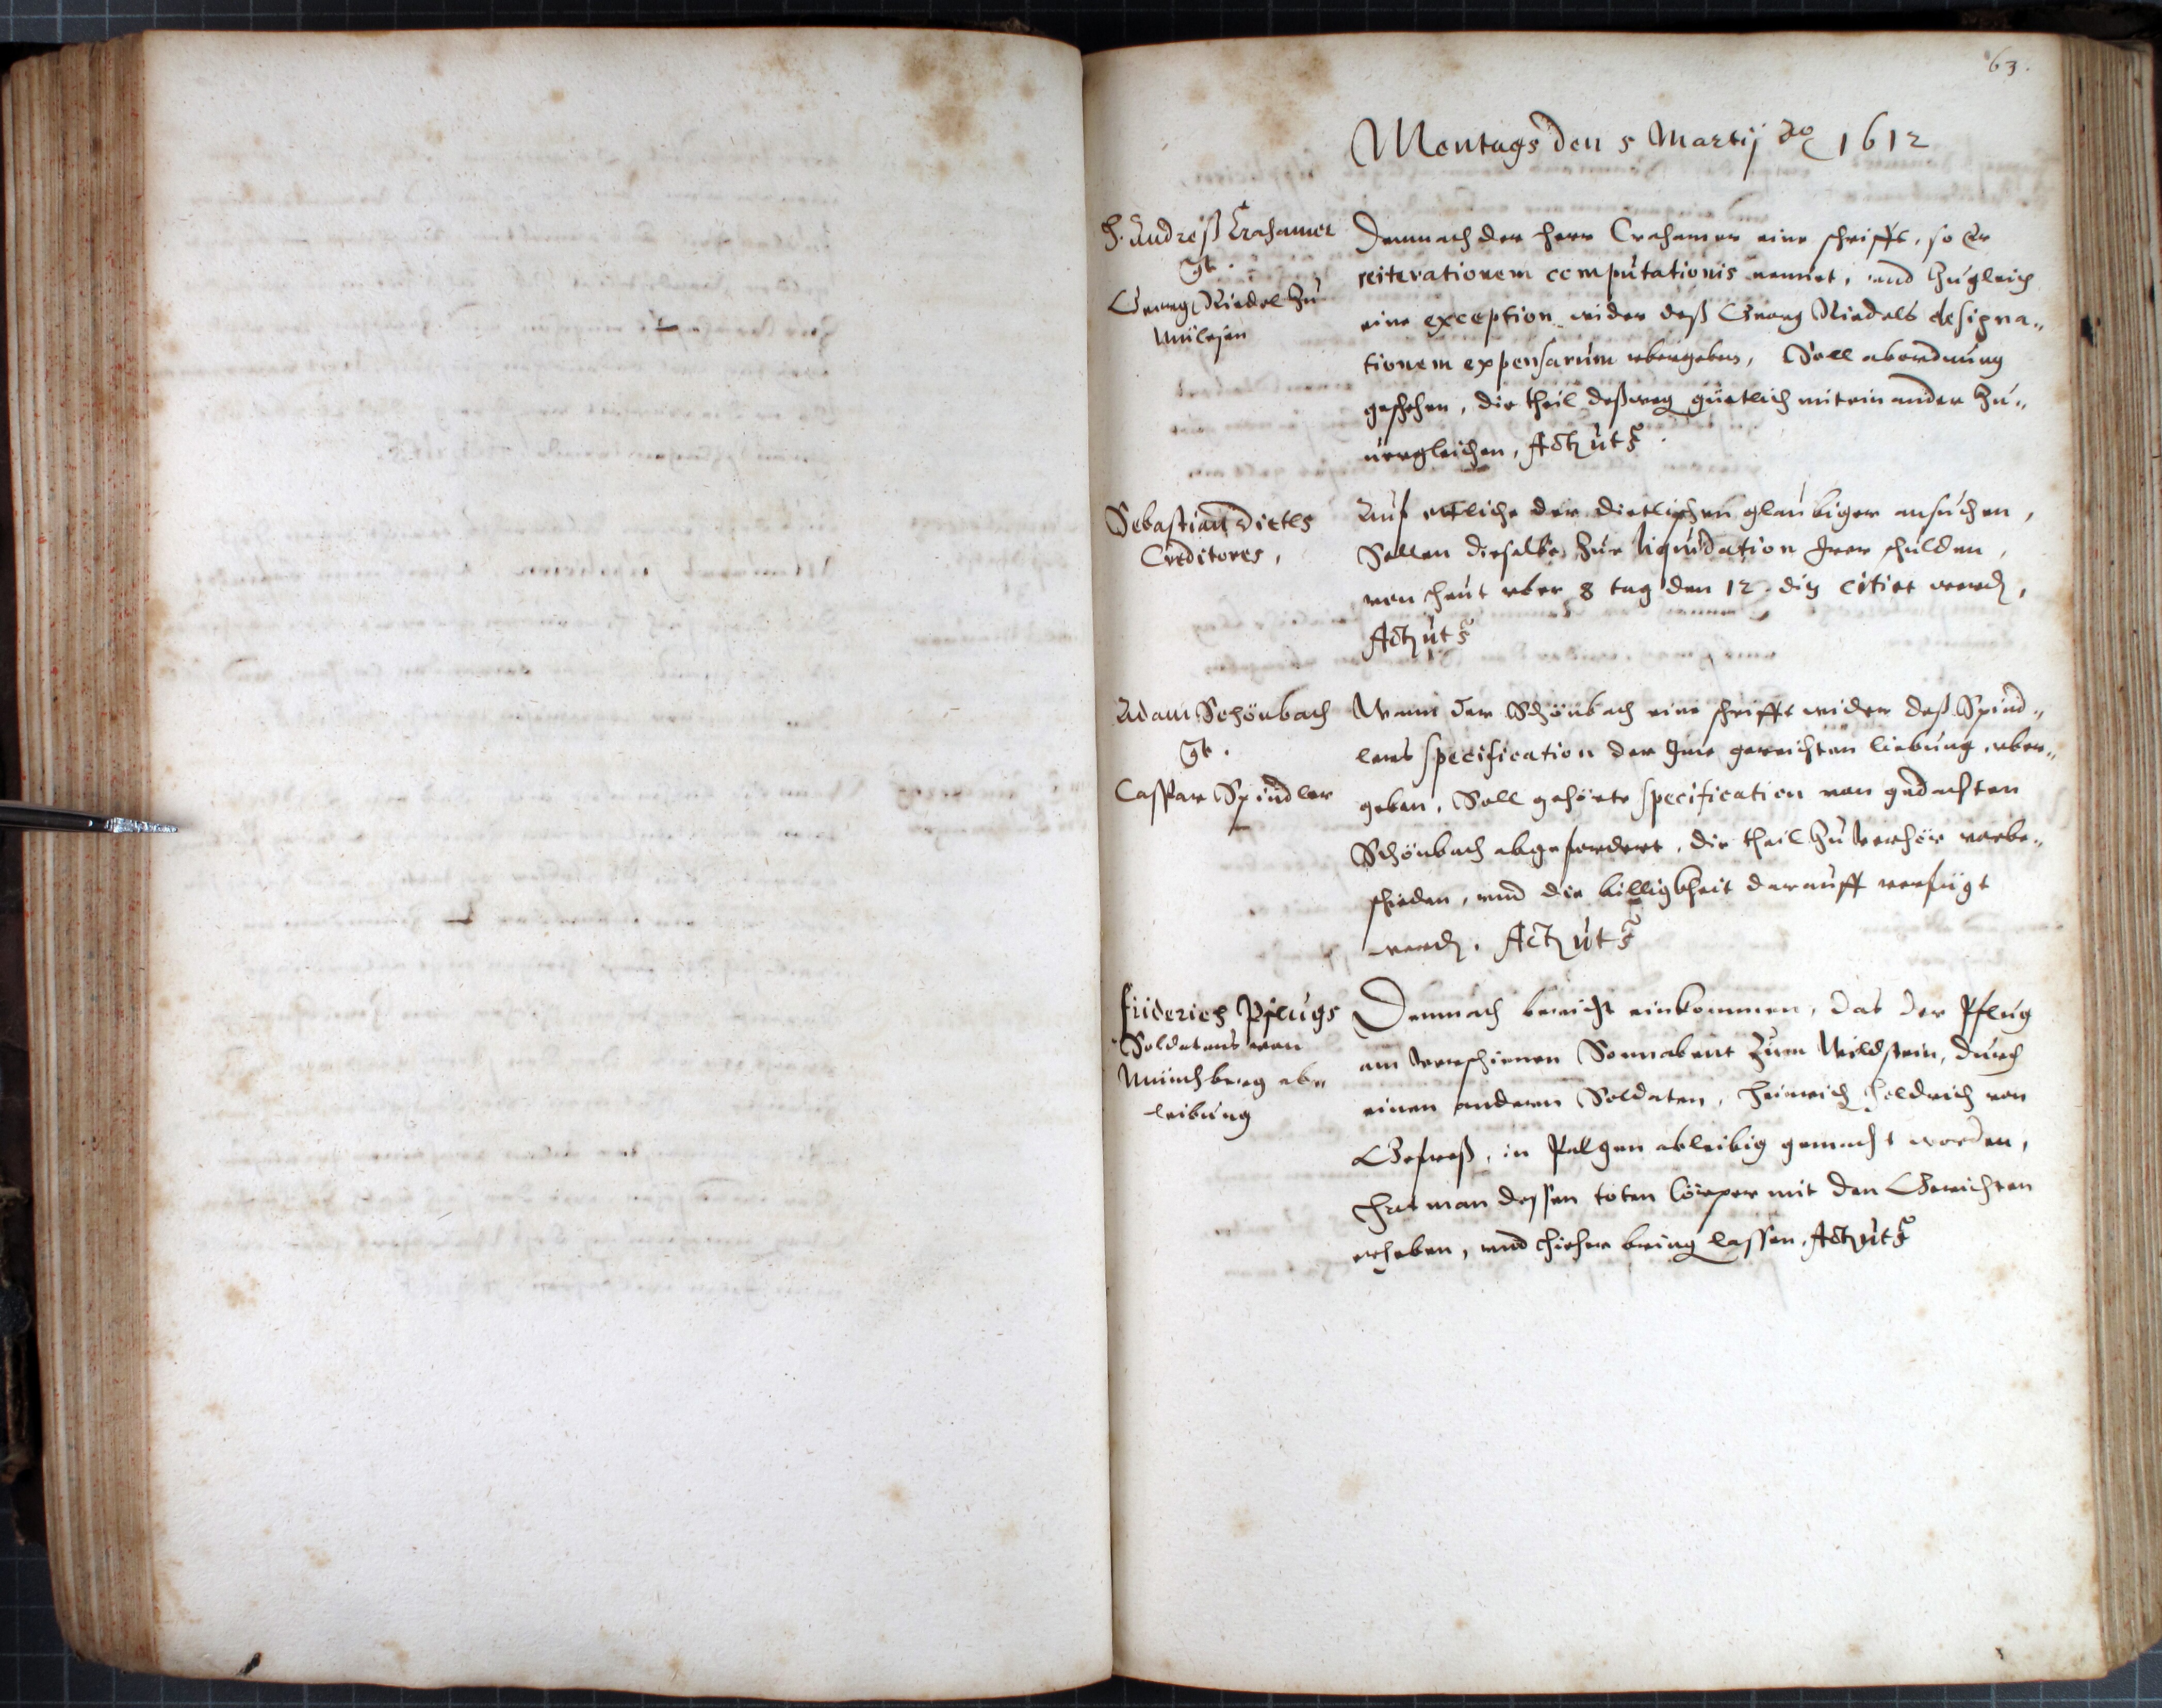 63.
Montags den 5 Martij Ao 1612
H. Andreß Crahamer
Georg Riedel zu
Mülesen
Demnach der Herr Crahamer eine schrifft, so Er
reiterationem computationis nennet, und zugleich
eine exception wider deß Georg Riedels designa„
tionem expensarum ubergeben, Soll abordnung
geschehen, die theil deßweg güetlich mitein ander zu„
uergleichen, Act ut s
Sebastian Dietls
Creditores,
Auf etliche der dietlischen glaubiger ansuchen,
Sollen dieselbe zur liquidation Irer schulden,
von heut uber 8 tag den 12. diß citirt werd,
Act ut s
Adam Schönbach
Caspar Spindler
Wann der Schönbach eine schrifft wider deß Spind„
lers specification der Ime gereichten liebung uber„
geben, Soll gehörte specification von gedachten
Schönbach abgefordert, die theil zu verhör vorbe„
schieden, und die billigkheit darauff verfügt
werd. Act ut s
Friderich Pflugs
Soldatens von
Münchberg ab„
leibung
Demnach bericht einkommen, das der Pflug
am verschienen Sonnabent zum Wildstein, durch
einen andern Soldaten, Heinrich Heldrich von
Gefreß, in Palgen ableibig gemacht worden,
Hat man dessen toten Cörper mit den Gerichten
erheben, und hieher bring lassen. Act ut s